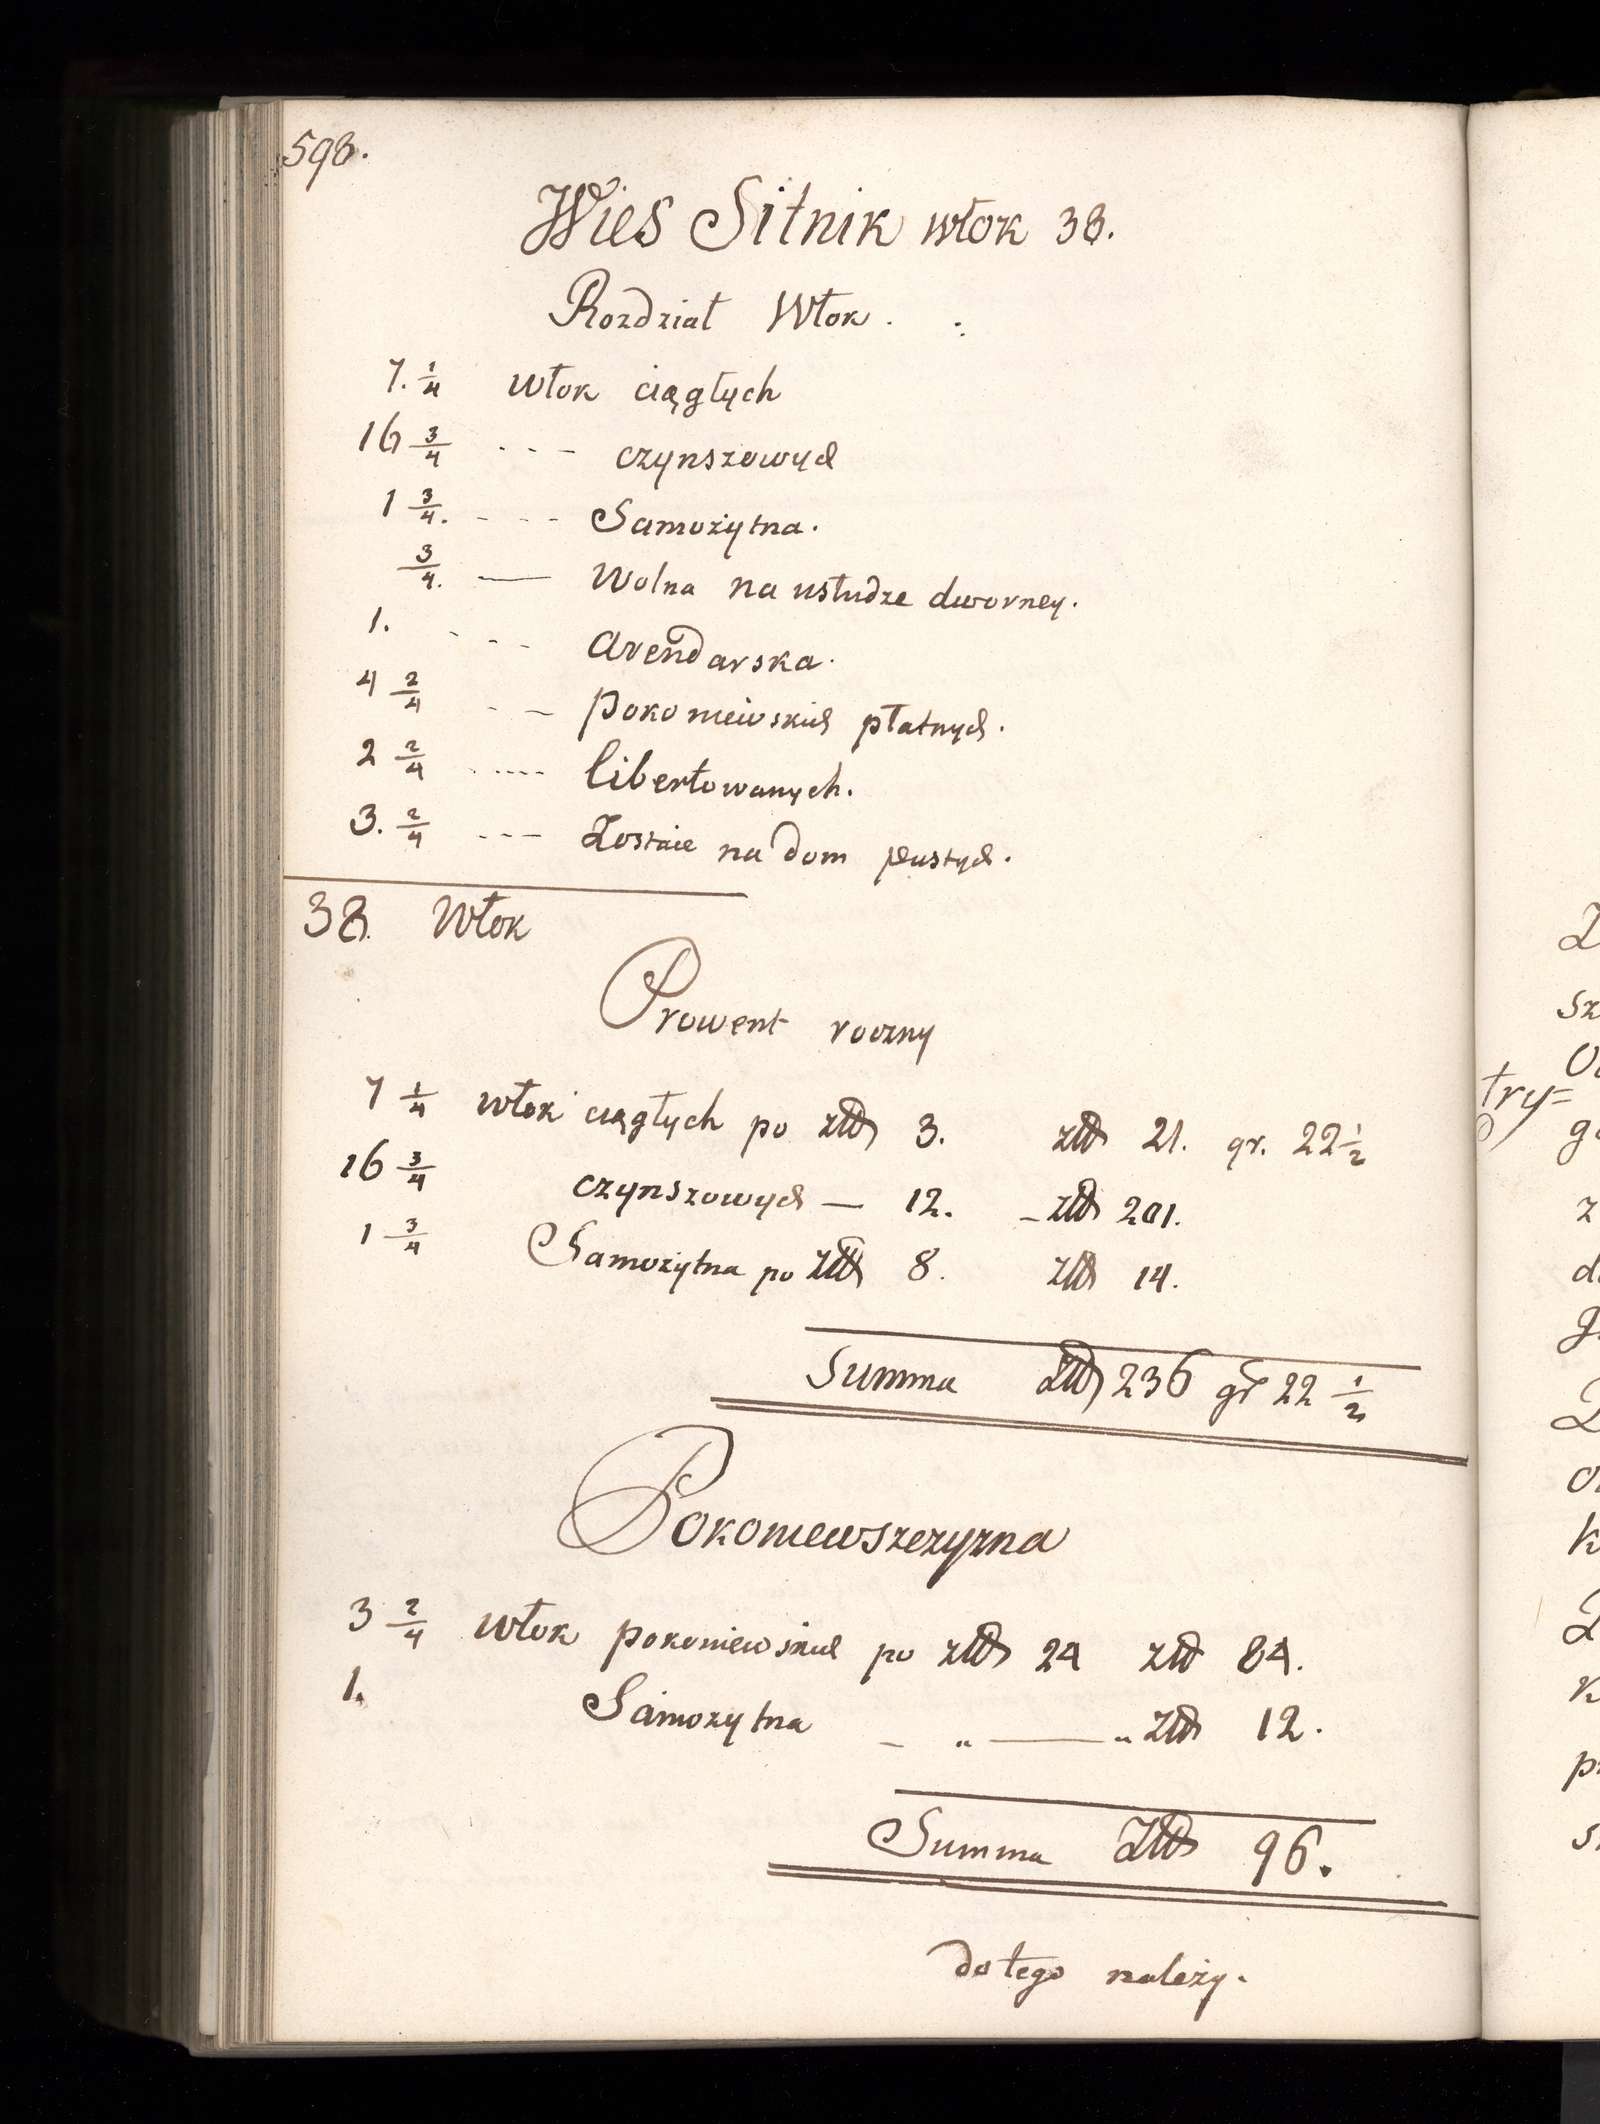 598.
Wies Sitnik włok 38.
Rozdział Włok.
7. 1/4 włok ciągłych
16 3/4 - - - czynszowych
1 3/4. - - - Samożytna.
3/4. — Wolna na usłudze dworney.
1. - - - arendarska.
4 2/4 - - pokoniewskich płatnych.
2 2/4 - - - - libertowanych.
3. 2/4 - - - Zostaie na dom pustych.
38. Włok
Prowent roczny
7 1/4 włok ciągłych po złł 3. złł 21. gr. 22 1/2
16 3/4 czynszowych — 12. - złł 201.
1 3/4 Samożytna po złł 8. złł 14.
Summa Złł 236 gr 22 1/2
Pokoniewszczyzna
3 2/4 włok pokoniewskich po złł 24 złł 84.
1. Samozytna - „ — „ złł 12.
Summa Złł 96.
do tego należy.
try=